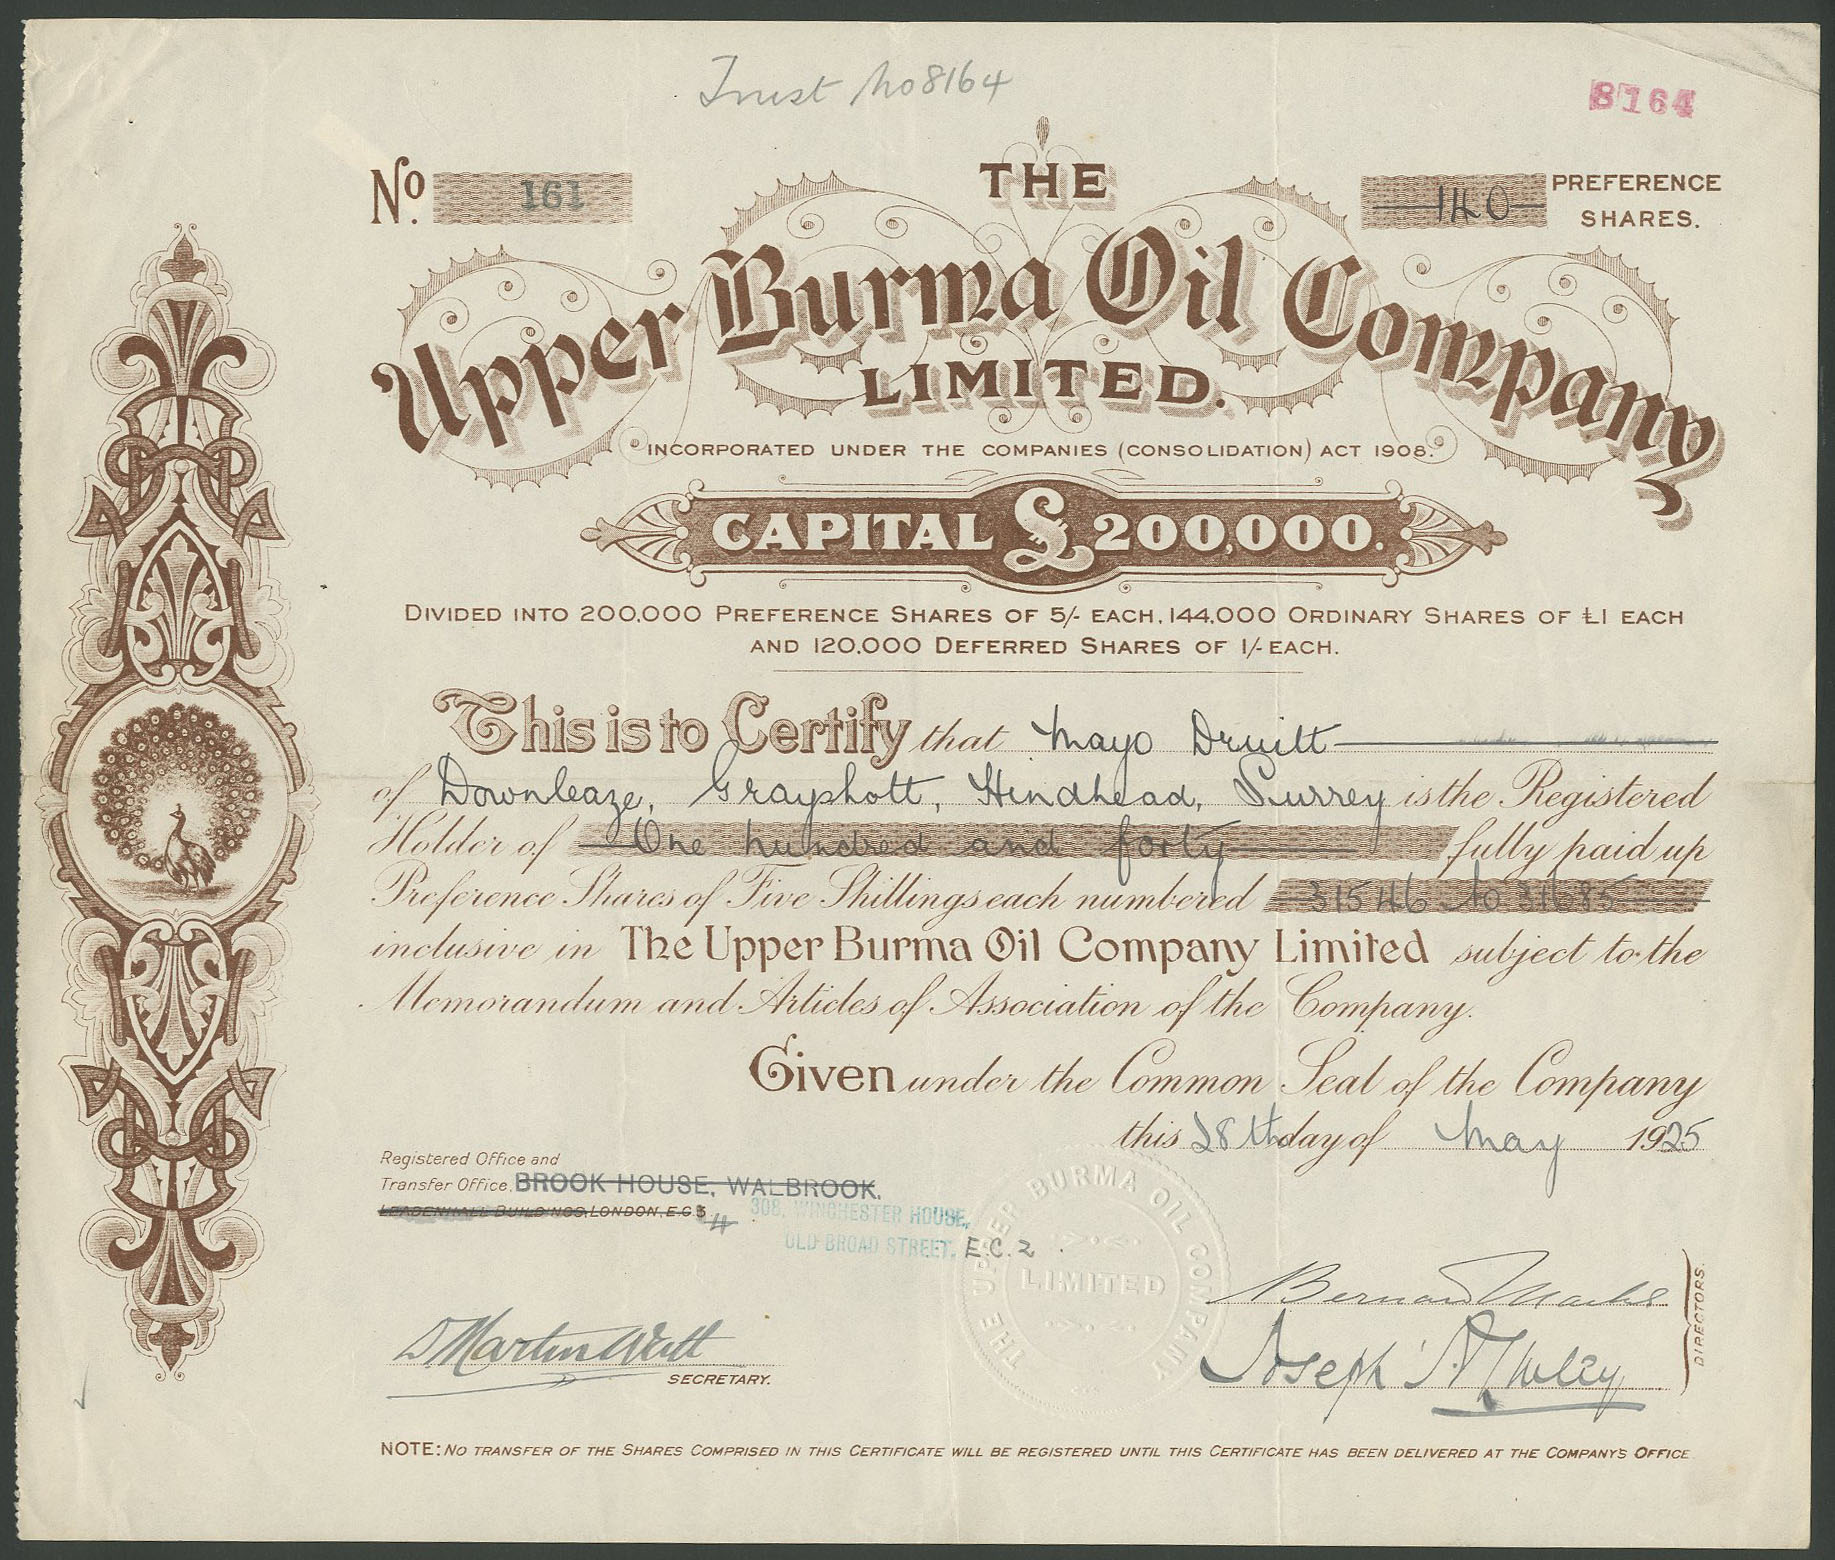 Trust No 8164
8164
No. 161
140 PREFERENCE SHARES.
THE
Upper Burma Oil Company
LIMITED.
INCORPORATED UNDER THE COMPANIES (CONSOLIDATION) ACT 1908.
CAPITAL £200,000.
DIVIDED INTO 200,000 PREFERENCE SHARES OF 5/- EACH, 144,000 ORDINARY SHARES OF £1 EACH
AND 120,000 DEFERRED SHARES OF 1/- EACH.
This is to Certify that Mayo Druitt
of Downleaze, Grayshott, Hindhead, Surrey is the Registered
Holder of One hundred and forty fully paid up
Preference Shares of Five Shillings each numbered 31546 to 31685
inclusive in The Upper Burma Oil Company Limited subject to the
Memorandum and Articles of Association of the Company.
Given under the Common Seal of the Company
this 28th day of May 1925
Registered Office and
Transfer Office, BROOK HOUSE, WALBROOK.
LEADENHALL BUILDINGS, LONDON, E.C. 4
308, WINCHESTER HOUSE,
OLD BROAD STREET, E.C. 2.
THE UPPER BURMA OIL COMPANY
LIMITED
Bernard
Joseph
DIRECTORS.
D Martin Watt
SECRETARY.
NOTE: NO TRANSFER OF THE SHARES COMPRISED IN THIS CERTIFICATE WILL BE REGISTERED UNTIL THIS CERTIFICATE HAS BEEN DELIVERED AT THE COMPANY'S OFFICE